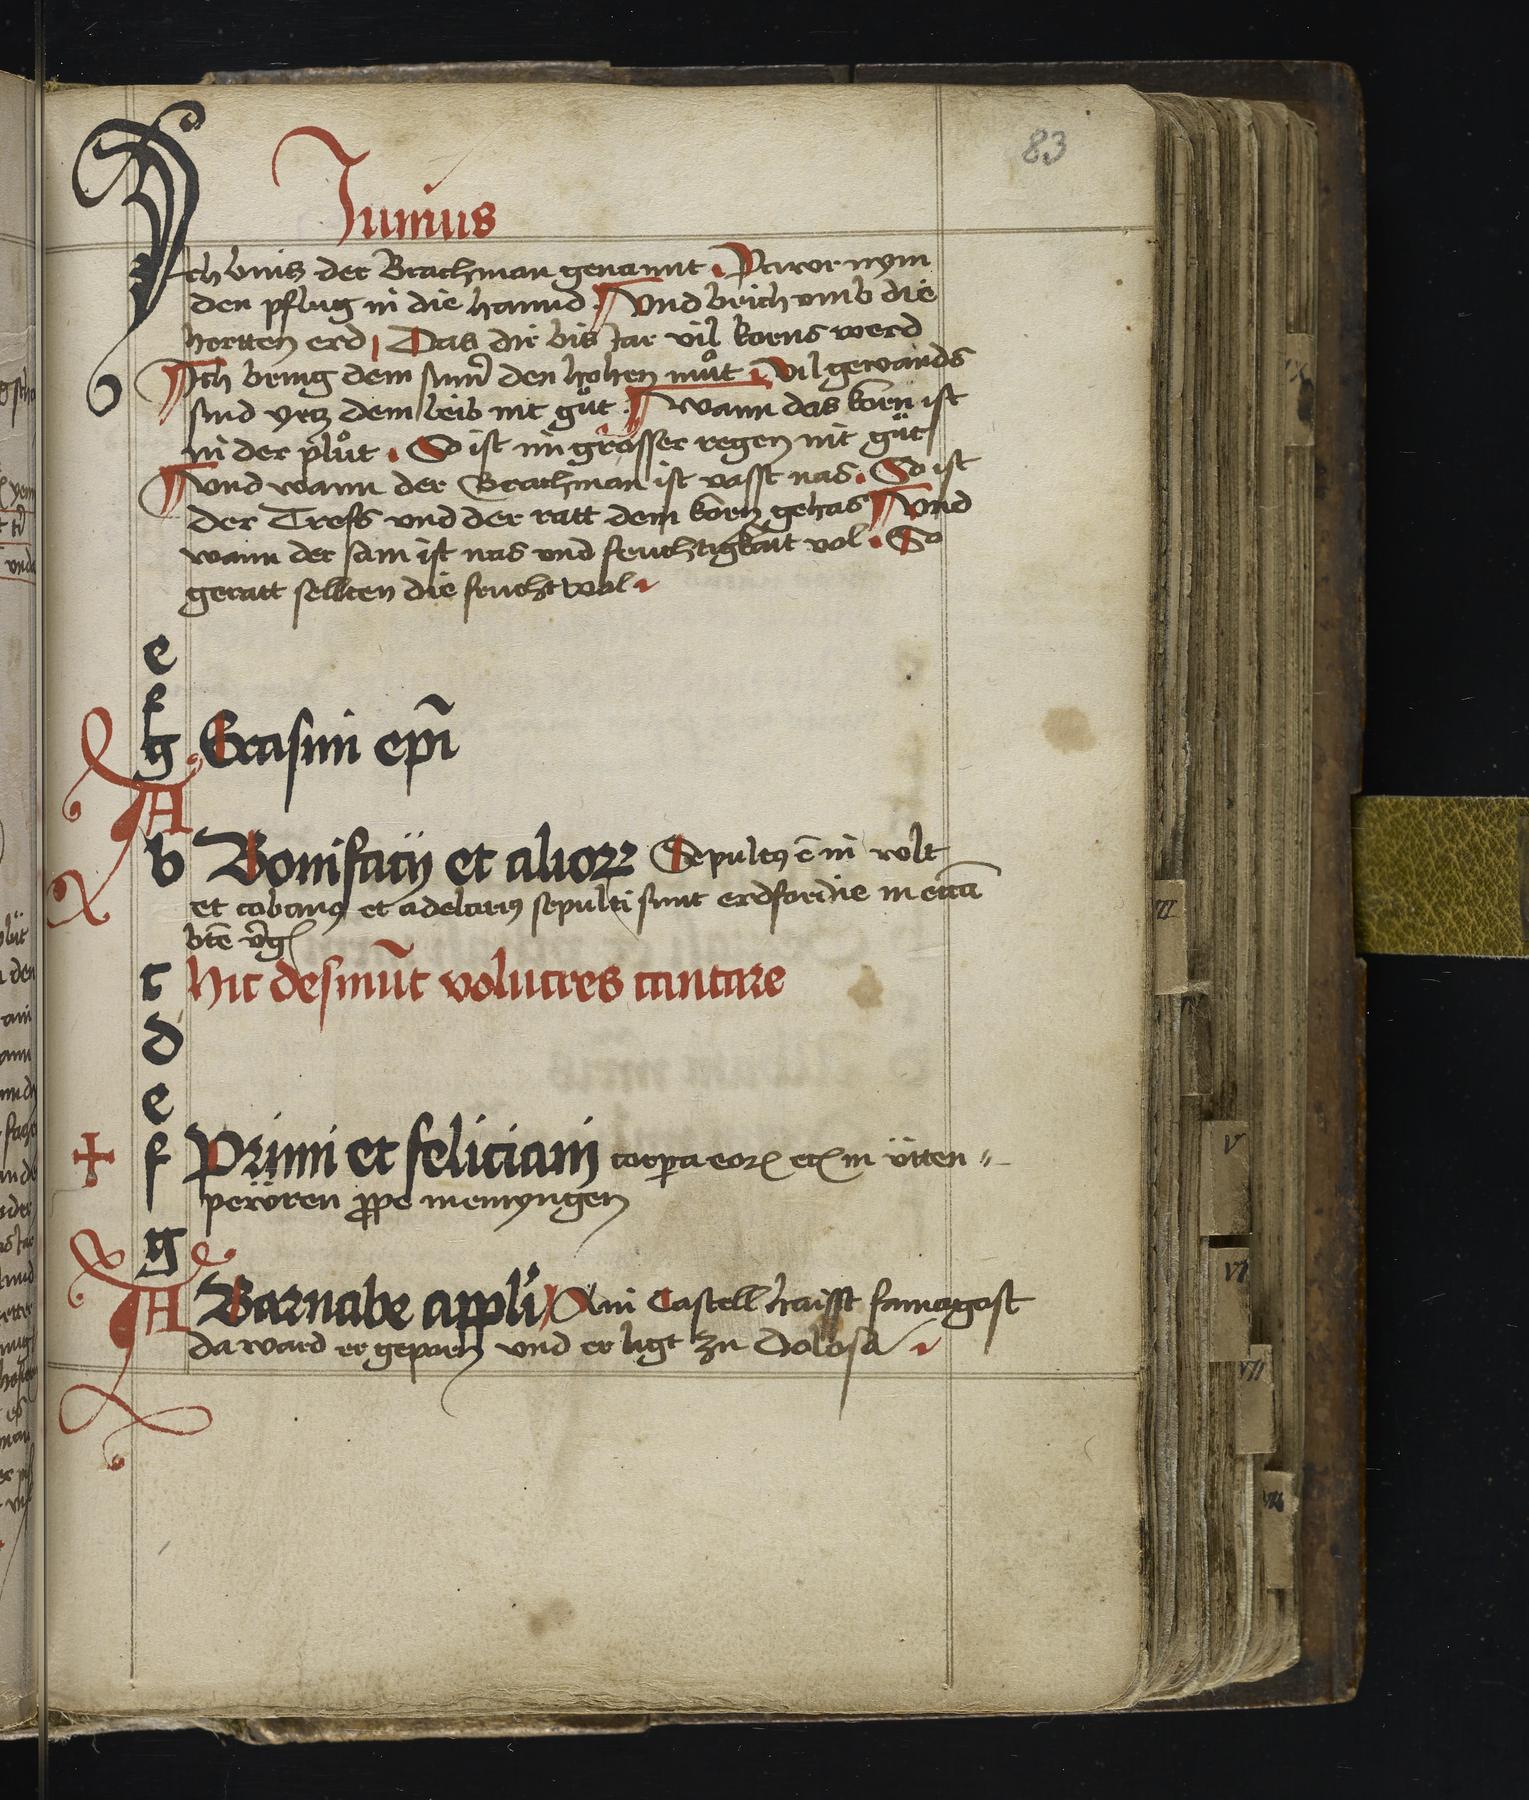 83
Junius
Ich bins der Brachman genannt. Pawr nym
den pflug in die hannd Und brich umb die
hertten erd, Das dir bis Jar vil korns werd
Ich bring dem sum̄ den hohen muͦt. Vil gewands
sind yetz dem leib nit guͦt. Wann das korn ist
in der pluͦt. So ist im grosser regen nit guͦt
Und wann der Brachman ist vasst nas. So ist
der Trefs und der ratt dem korn gehas Und
wann der sam ist nas und feuchtigkait vol. So
geratt sellten die frucht wol.
e
f
g Erasmi ep̄i
A
b Bonifacij et alioꝝ Sepultꝰ ē in volt
et cobanꝰ et adelariꝰ sepulti sunt erdfordie in
btē v̄g
c hic desinūt volucres cantare
d
e
f Primi et feliciani corꝑa eoꝝ in ütten⸗
peẅren ꝓpe memyngen
g
A Barnabe appli Ain Castell haisst famagost
da ward er geporn und er ligt zu Dolosa.
III
V
VI
VII